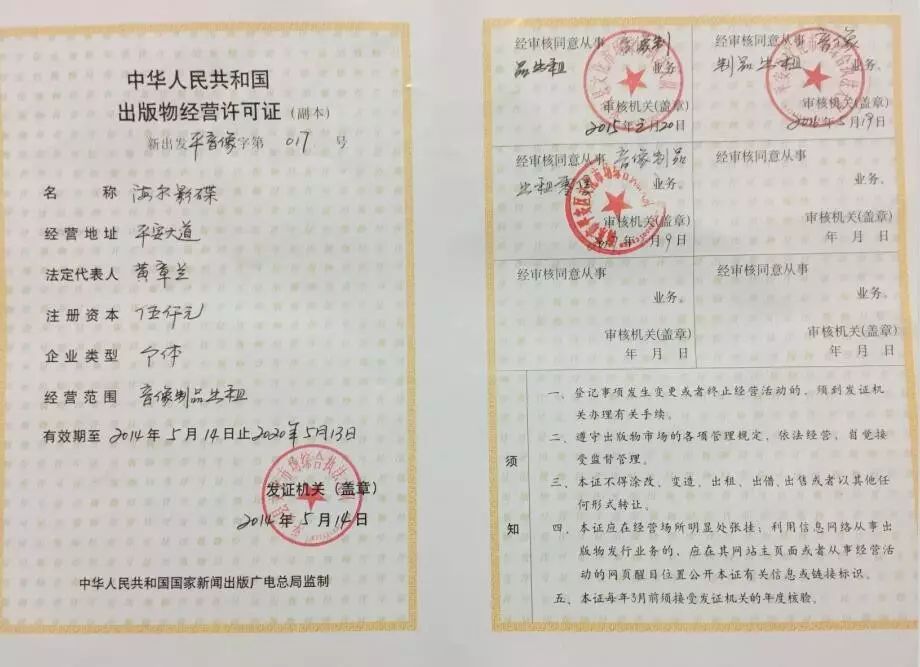 中华人民共和国
出版物经营许可证（副本）
新出发平音像字第 017 号
名 称 海尔影碟
经营地址 平安大道
法定代表人 黄章兰
注册资本 伍仟元
企业类型 个体
经营范围 音像制品出租
有效期至 2014年5月14日止2020年5月13日
发证机关（盖章）
2014年5月14日
中华人民共和国国家新闻出版广电总局监制
经审核同意从事 音像制
品出租 业务。
审核机关(盖章)
2015年3月20日
经审核同意从事 音像
制品出租 业务。
审核机关(盖章)
年5月19日
经审核同意从事 音像制品
出租 业务。
审核机关(盖章)
年 月9日
经审核同意从事
业务。
审核机关(盖章)
年 月 日
经审核同意从事
业务。
审核机关(盖章)
年 月 日
经审核同意从事
业务。
审核机关(盖章)
年 月 日
须知
一、登记事项发生变更或者终止经营活动的，须到发证机
关办理有关手续。
二、遵守出版物市场的各项管理规定，依法经营，自觉接
受监督管理。
三、本证不得涂改、变造、出租、出借、出售或者以其他任
何形式转让。
四、本证应在经营场所明显处张挂；利用信息网络从事出
版物发行业务的，应在其网站主页面或者从事经营活
动的网页醒目位置公开本证有关信息或链接标识。
五、本证每年3月前须接受发证机关的年度核验。